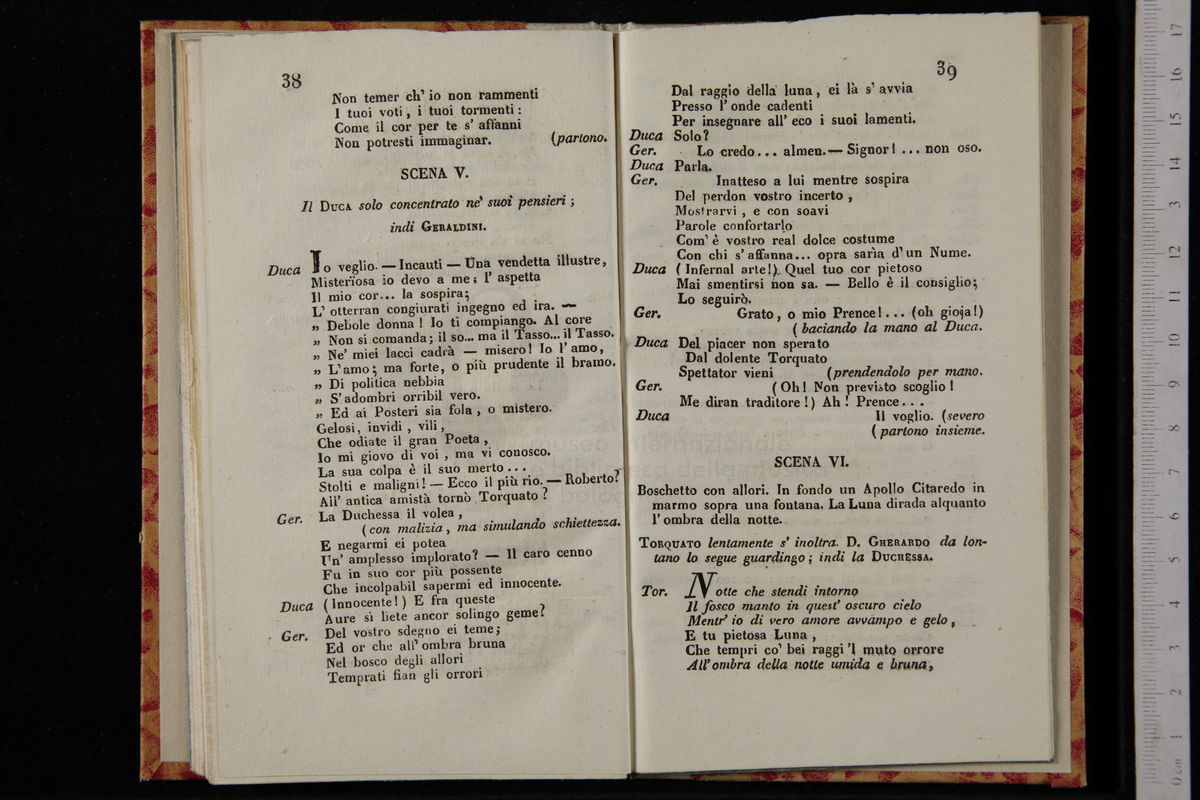 38
Non temer ch' io non rammenti
I tuoi voti, i tuoi tormenti:
Come il cor per te s' affanni
Non potresti immaginar. (partono.
SCENA V.
Il DUCA solo concentrato ne' suoi pensieri;
indi GERALDINI.
Duca Io veglio. — Incauti — Una vendetta illustre,
Misterïosa io devo a me: l' aspetta
Il mio cor... la sospira;
L' otterran congiurati ingegno ed ira. —
„ Debole donna! Io ti compiango. Al core
„ Non si comanda; il so... ma il Tasso... il Tasso.
„ Ne' miei lacci cadrà — misero! Io l' amo,
„ L'amo; ma forte, o più prudente il bramo.
„ Di politica nebbia
„ S' adombri orribil vero.
„ Ed ai Posteri sia fola, o mistero.
Gelosi, invidi, vili,
Che odiate il gran Poeta,
Io mi giovo di voi, ma vi conosco.
La sua colpa è il suo merto...
Stolti e maligni! — Ecco il più rio. — Roberto?
All' antica amistà tornò Torquato?
Ger. La Duchessa il volea,
(con malizia, ma simulando schiettezza.
E negarmi ei potea
Un' amplesso implorato? — Il caro cenno
Fu in suo cor più possente
Che incolpabil sapermi ed innocente.
Duca (Innocente!) E fra queste
Aure sì liete ancor solingo geme?
Ger. Del vostro sdegno ei teme;
Ed or che all' ombra bruna
Nel bosco degli allori
Temprati fian gli orrori
39
Dal raggio della luna, ei là s' avvia
Presso l' onde cadenti
Per insegnare all' eco i suoi lamenti.
Duca Solo?
Ger. Lo credo... almen. — Signor! ... non oso.
Duca Parla.
Ger. Inatteso a lui mentre sospira
Del perdon vostro incerto,
Mostrarvi, e con soavi
Parole confortarlo
Com' è vostro real dolce costume
Con chi s' affanna... opra sarìa d' un Nume.
Duca (Infernal arte!) Quel tuo cor pietoso
Mai smentirsi non sa. — Bello è il consiglio;
Lo seguirò.
Ger. Grato, o mio Prence!... (oh gioja!)
(baciando la mano al Duca.
Duca Del piacer non sperato
Dal dolente Torquato
Spettator vieni (prendendolo per mano.
Ger. (Oh! Non previsto scoglio!
Me diran traditore!) Ah! Prence...
Duca Il voglio. (severo
(partono insieme.
SCENA VI.
Boschetto con allori. In fondo un Apollo Citaredo in
marmo sopra una fontana. La Luna dirada alquanto
l' ombra della notte.
TORQUATO lentamente s' inoltra. D. GHERARDO da lon-
tano lo segue guardingo; indi la DUCHESSA.
Tor. Notte che stendi intorno
Il fosco manto in quest' oscuro cielo
Mentr' io di vero amore avvampo e gelo,
E tu pietosa Luna,
Che tempri co' bei raggi 'l muto orrore
All' ombra della notte umida e bruna,
museo internazionale
e biblioteca della musica
0 cm 1 2 3 4 5 6 7 8 9 10 11 12 13 14 15 16 17